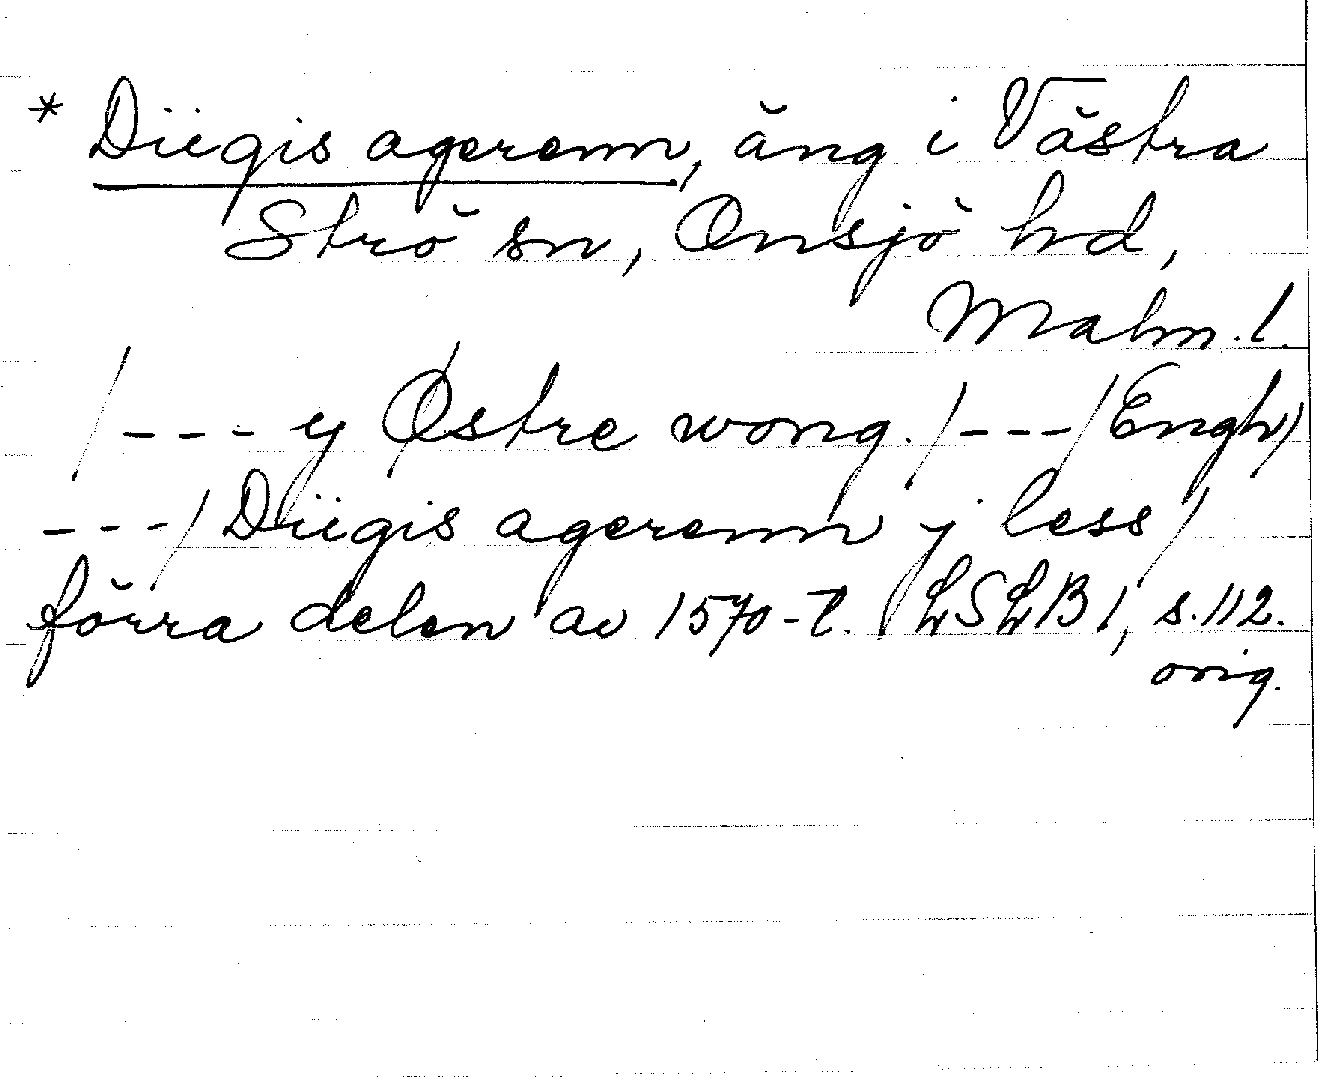 * Diigis agerenn, äng i Västra
Strö sn, Onsjö hd,
Malm.l.
/--- ij Østre wong./---/Engh/
---/Diigis agerenn j less/
förra delen av 1570-t. LSLB 1, s.112.
orig.